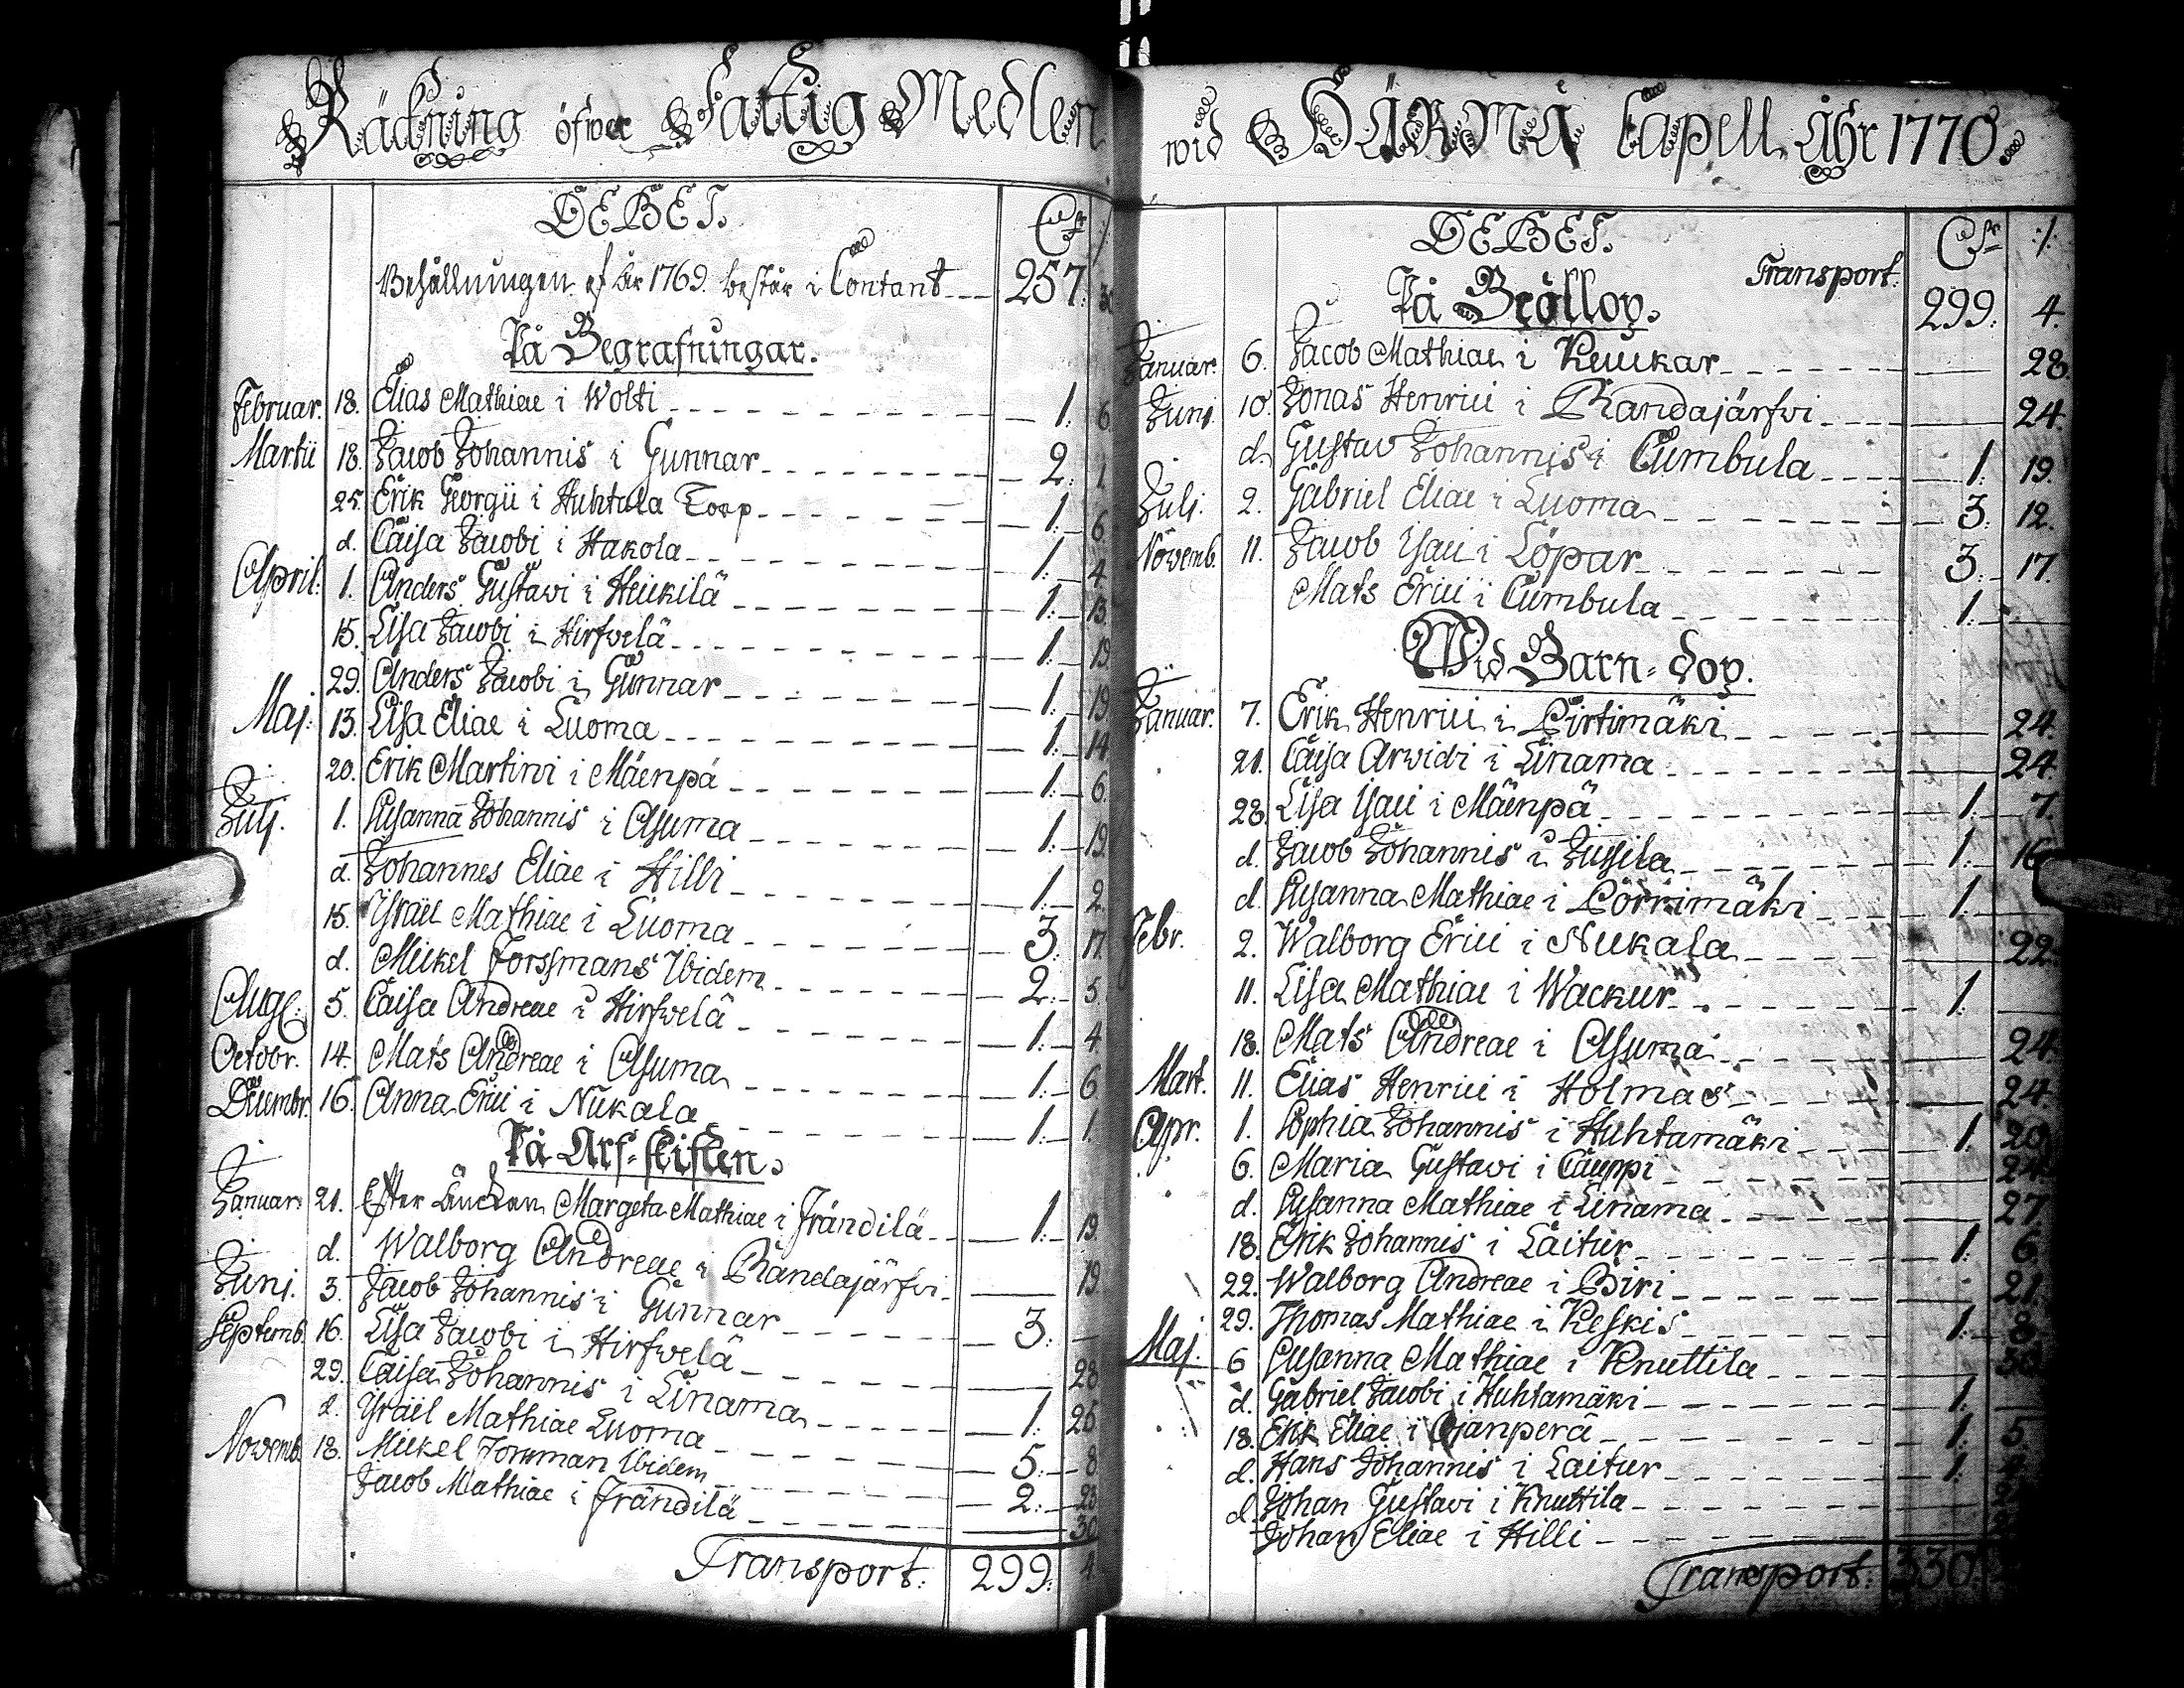 Räkning öfwer Fattig Medlen
DEBET. Cr. :/:
Behållningen af år 1769. består i Contant 257:
På Begrafningar.
Februar. 18. Elias Mathiae i Wolti 1: 6.
Martii 18. Jacob Johannis i Gunnar 2: 1.
25. Erik Georgii i Huhtala Torp 1: 6.
d. Caisa Jacobi i Hakola 1: 4.
April: 1. Anders Gustavi i Heickilä 1: 13.
15. Lisa Jacobi i Hirfwelä 1: 19.
29. Anders Jacobi i Gunnar 1: 19.
Maj: 13. Lisa Eliae i Luoma 1: 14.
20. Erik Martini i Mäenpä 1: 6.
Julj. 1. Susanna Johannis i Asuma 1: 19.
d. Johannes Eliae i Hilli 1: 2.
15. Ysräel Mathiae i Luoma 3: 17.
d. Mickel Forssmans Ibidem 2: 5.
Aug: 5. Caisa Andreae i Hirfwelä 1: 4.
Octobr. 14. Mats Andreae i Asuma 1: 6.
Decembr. 16. Anna Erici i Nickala 1: 1.
På Arf-skiften.
Januar: 21. Efter Änckan Margeta Mathiae i Frändilä 1: 19.
d. Walborg Andreae i Randajärfwi 19.
Junj. 3. Jacob Johannis i Gunnar 3:
Septemb. 16. Lisa Jacobi i Hirfwelä 28
29. Caisa Johannis i Linama 1: 25
d. Ysräel Mathiae Luoma 5: 8
Novemb. 18. Mickel Forssman Ibidem 2: 23
Jacob Mathiae i Frändilä 30
Transport: 299: 4.
wid HÄRMÄ Capell Åhr 1770.
DEBET. Cr. :/:
Transport:
På Bröllop. 299: 4.
Januar. 6. Jacob Mathiae i Keuckar 28.
Junj. 10. Jonas Henrici i Randajärfwi 24.
d. Gustav Johannis i Cumbula 1: 19.
Julj. 2. Gabriel Eliae i Luoma 3: 12.
Novemb. 11. Jacob Isaci i Löpar 3: 17.
Mats Erici i Cumbula 1:
Wid Barn-Dop.
Januar. 7. Erik Henrici i Pirtimäki 24.
21. Caisa Arvidi i Linama 24.
28. Lisa Isaci i Mäenpä 1: 7.
d. Jacob Johannis i Jussila 1: 16
d. Susanna Mathiae i Pörrimäki 1:
Febr. 2. Walborg Erici i Nickala 22.
11. Lisa Mathiae i Wackur 1:
18. Mats Andreae i Asuma 24.
Mart. 11. Elias Henrici i Holmas 24.
Apr. 1. Sophia Johannis i Huhtamäki 1: 20
6. Maria Gustavi i Cauppi 24.
d. Susanna Mathiae i Linama 27
18. Erik Johannis i Laitur 1: 6.
22. Walborg Andreae i Biri 21.
29. Thomas Mathiae i Keskis 1: 8
Maj. 6 Susanna Mathiae i Knuttila 30
d. Gabriel Jacobi i Huhtamäki 1:
18. Erik Eliae i Ojanperä 1: 5.
d. Hans Johannis i Laitur 1:
d. Johan Gustavi i Knuttila
Johan Eliae i Hilli
Transport: 330.